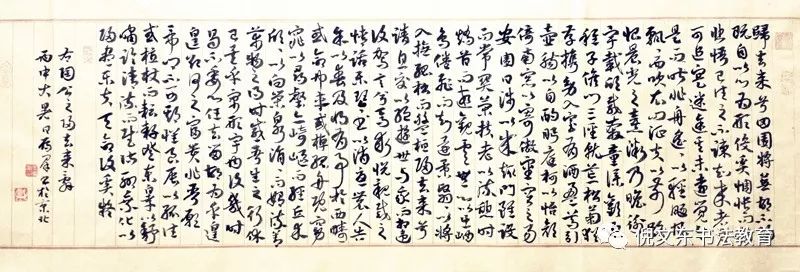 歸去來兮田園將蕪胡不歸
既自以心為形役奚惆悵而獨
悲悟已往之不諫知來者之
可追實迷途其未遠覺今
是而昨非舟遙遙以輕颺風
飄飄而吹衣問征夫以前路
恨晨光之熹微乃瞻衡
宇載欣載奔僮僕歡迎
稚子候門三徑就荒松菊猶
存攜幼入室有酒盈樽引
壺觴以自酌眄庭柯以怡顏
倚南窗以寄傲審容膝之易
安園日涉以成趣門雖設
而常關策扶老以流憩時
矯首而遐觀雲無心以出岫
鳥倦飛而知還景翳翳以將
入撫孤松而盤桓歸去來兮
請息交以絕遊世與我而相違
復駕言兮焉求悅親戚之
情話樂琴書以消憂農人告
余以春及將有事於西疇
或命巾車或棹孤舟既窈
窕以尋壑亦崎嶇而經丘木欣
欣以向榮泉涓涓而始流善
萬物之得時感吾生之行休
已矣乎寓形宇內復幾時
曷不委心任去留胡為乎遑
遑欲何之富貴非吾願
帝鄉不可期懷良辰以孤往
或植杖而耘耔登東皋以舒
嘯臨清流而賦詩聊乘化以
歸盡樂夫天命復奚疑
右陶公之歸去來辭
丙申大 於京北
倪文东书法教育